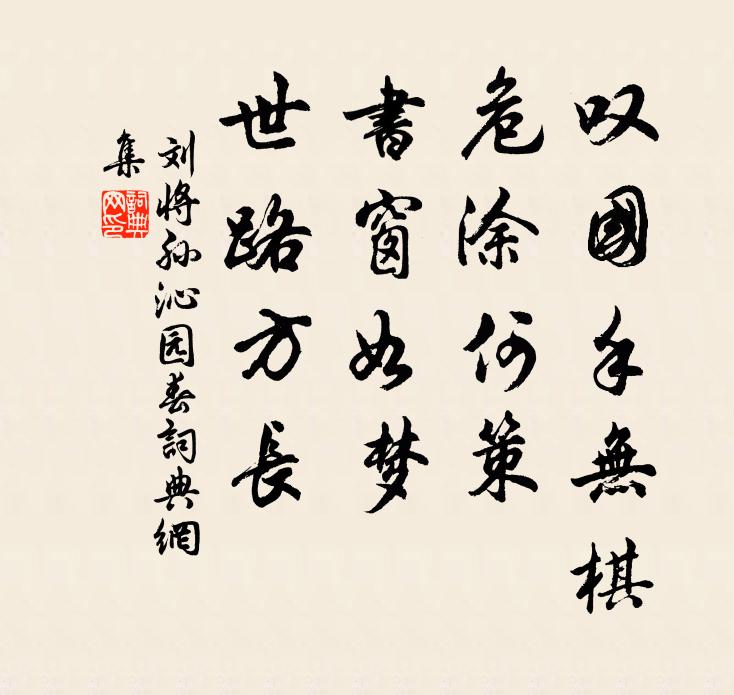 叹國手無棋
危涂何策
書窗如梦
世路方長
刘将孙沁园春詞典網
集
詞典网印